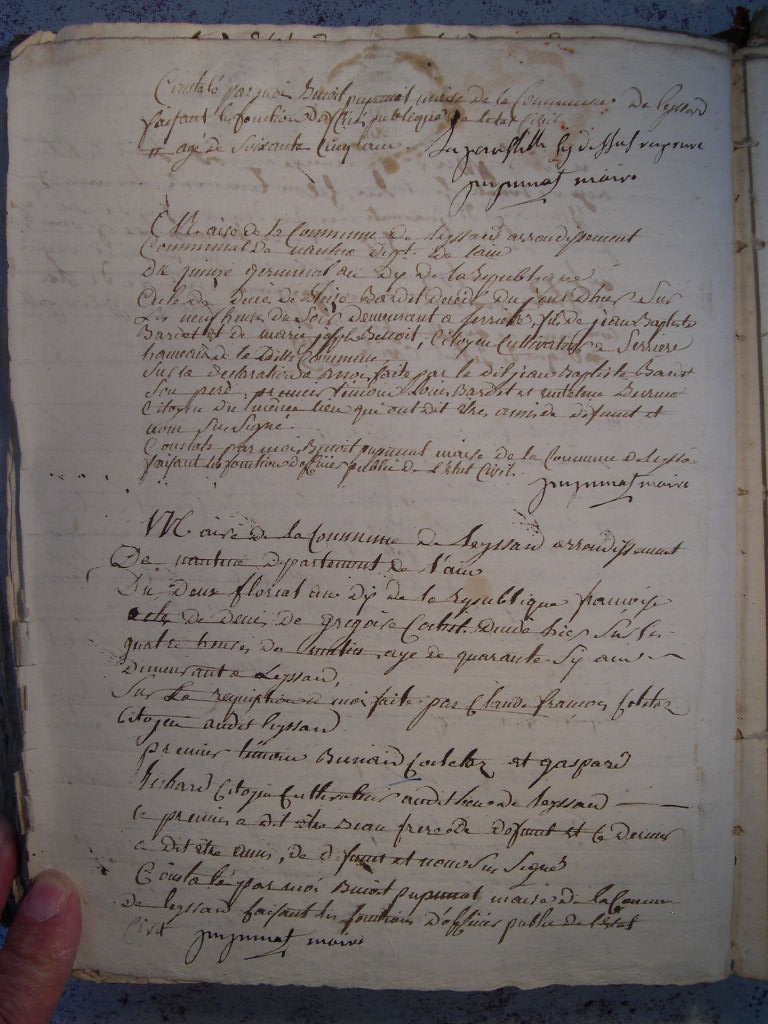 Constaté par moi Benoit pupunat maire de la Commune de leyssard
faisant les fonction d'officier publique de letat Civil
agé de soixante Cinq ans.
pupunat maire
Mairie de la Commune de leyssard arrondissement
Communal de nantua dept. de lain
Du quinze germinal an dix de la Republique
acte de deces de Bardet décédé du jour dhier sur
les neuf heures du soir demeurant a serriere, fils de jean Baptiste
Bardet et de marie josephe Benoit, Citoyen Cultivateur a Serriere
hameau de la ditte Commune
sur la declaration a moi faite par le dit jean Baptiste Bardet
son pere, premier temoin Louis Bardet et
Citoyen du même lieu qui ont dit etre amis de defunt et
nom sus signé.
Constaté par moi Benoit pupunat maire de la Commune de leyssard
faisant les fonction d'officier public de l'etat Civil.
pupunat maire
Mairie de la Commune de leyssard arrondissement
De nantua departement de l'ain
Du deux floreal an dix de la republique francoise
acte de deces de gregoire decédé hier sur les
quatre heures du matin, age de quarante six ans
demeurant a Leyssard,
sur la requisition a moi faite par Claude françois
Citoyen audit leyssard
premier temoin et gaspard
Richard Citoyen Cultivateur audit lieu de leyssard
le premier a dit etre Beau frere de defunt et le dernier
a dit etre amis, de defunt et nom sus signés
Constaté par moi Benoit pupunat maire de la Commune
de leyssard faisant les fonctions d'officier public de l'etat
Civil pupunat maire